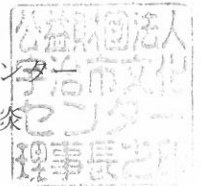 公益財団法人
宇治市文化
センター
理事長之印
ンター
炎